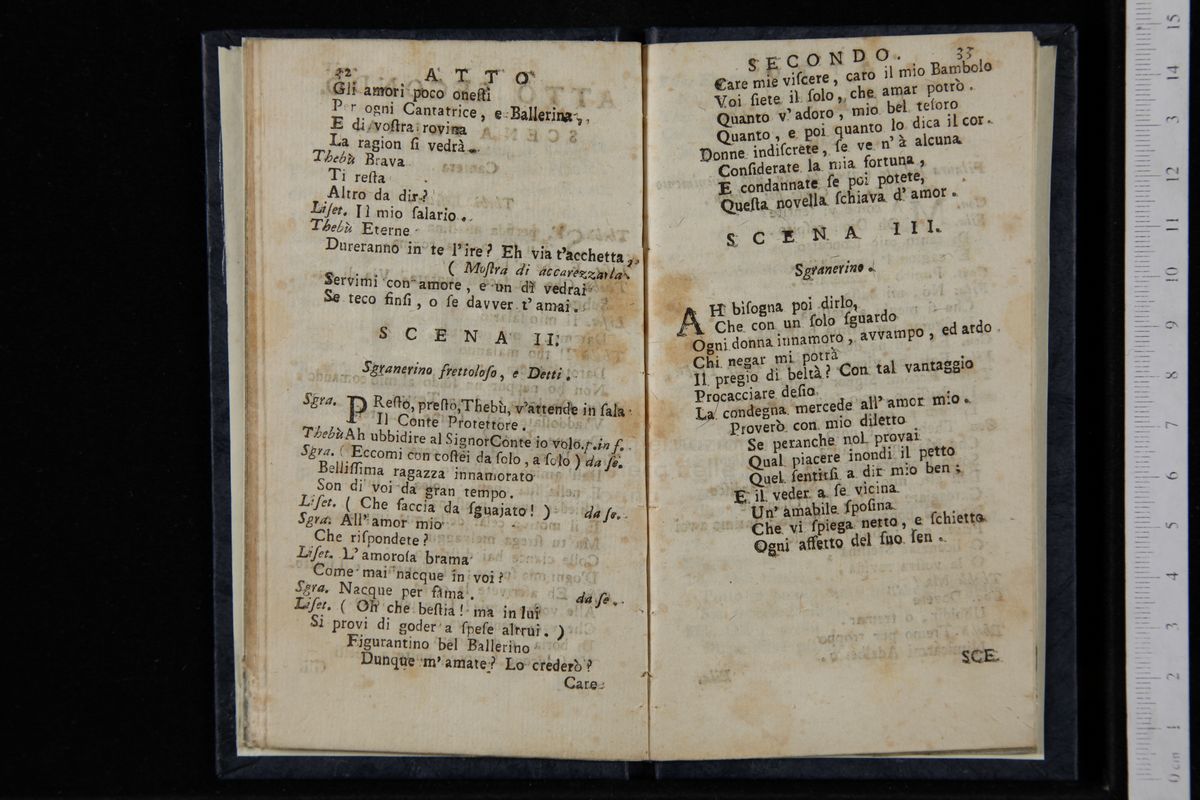 32 ATTO
Gli amori poco onesti
Per ogni Cantatrice, e Ballerina,
E di vostra rovina
La ragion si vedrà.
Thebù Brava
Ti resta
Altro da dir?
Liset. Il mio salario.
Thebù Eterne
Dureranno in te l'ire? Eh via t'acchetta,
( Mostra di accarezzarla.
Servimi con amore, e un dì vedrai
Se teco finsi, o se davver t'amai.
SCENA II.
Sgranerino frettoloso, e Detti.
Sgra. PResto, presto, Thebù, v'attende in sala
Il Conte Protettore.
Thebù Ah ubbidire al Signor Conte io volo. p. in f.
Sgra. ( Eccomi con costei da solo, a solo ) da se.
Bellissima ragazza innamorato
Son di voi da gran tempo.
Liset. ( Che faccia da sguajato! ) da se.
Sgra. All' amor mio
Che rispondete?
Liset. L'amorosa brama
Come mai nacque in voi?
Sgra. Nacque per fama.
Liset. ( Oh che bestia! ma in lui da se.
Si provi di goder a spese altrui. )
Figurantino bel Ballerino
Dunque m'amate? Lo crederò?
Care
SECONDO. 33
Care mie viscere, caro il mio Bambolo
Voi siete il solo, che amar potrò.
Quanto v'adoro, mio bel tesoro
Quanto, e poi quanto lo dica il cor.
Donne indiscrete, se ve n'à alcuna
Considerate la mia fortuna,
E condannate se poi potete,
Questa novella schiava d'amor.
SCENA III.
Sgranerino.
AH bisogna poi dirlo,
Che con un solo sguardo
Ogni donna innamoro, avvampo, ed ardo
Chi negar mi potrà
Il pregio di beltà? Con tal vantaggio
Procacciare desio
La condegna mercede all' amor mio.
Proverò con mio diletto
Se peranche nol provai
Qual piacere inondi il petto
Quel sentirsi a dir mio ben;
E il veder a se vicina
Un' amabile sposina
Che vi spiega netto, e schietto
Ogni affetto del suo sen.
SCE
15
14
13
12
11
10
9
8
7
6
5
4
3
2
1
0 cm